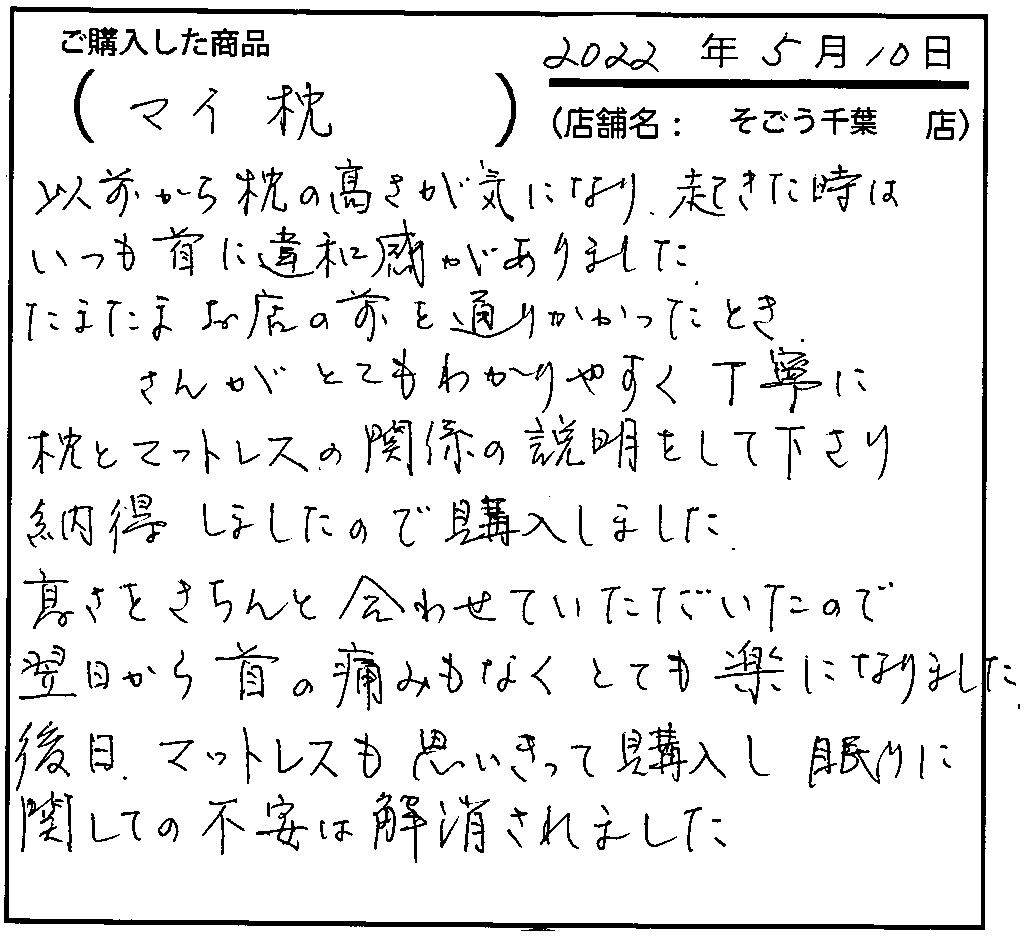 ご購入した商品
2022年5月10日
(マイ枕)
(店舗名： そごう千葉 店)
以前から枕の高さが気になり、起きた時は
いつも首に違和感がありました。
たまたまお店の前を通りかかったとき、
さんがとてもわかりやすく丁寧に
枕とマットレスの関係の説明をして下さり
納得しましたので購入しました。
高さをきちんと合わせていただいたので
翌日から首の痛みもなくとても楽になりました。
後日、マットレスも思いきって購入し眠りに
関しての不安は解消されました